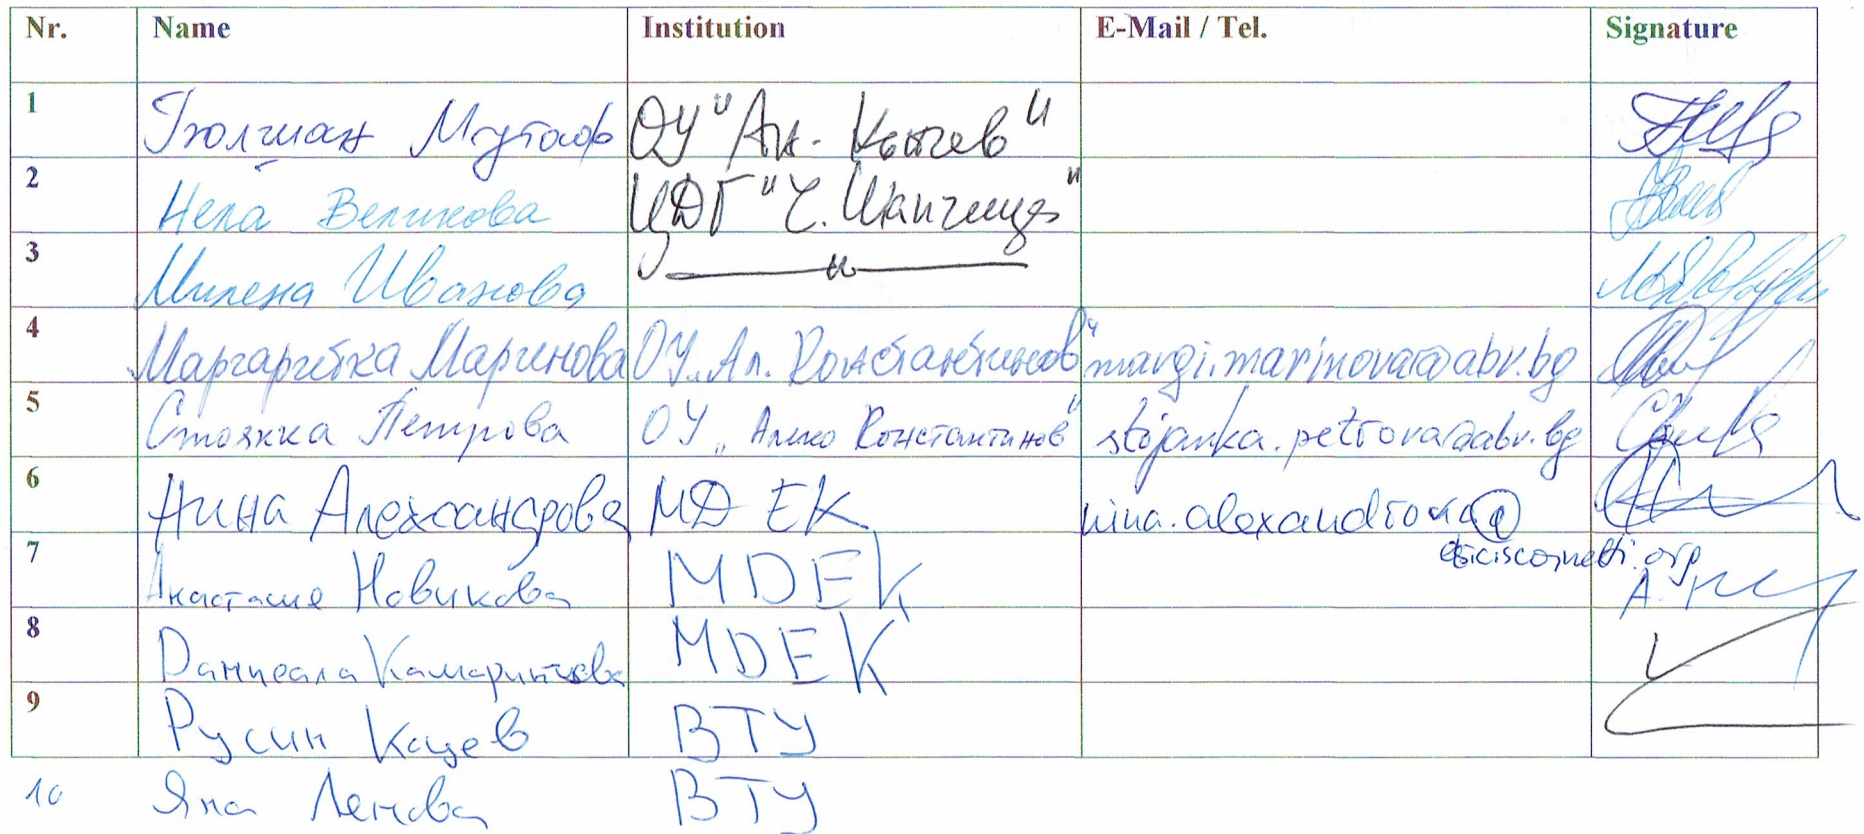 Nr. Name Institution E-Mail / Tel. Signature
1 Гюлшан Мутаф ОУ "Ан. Кънчев"
2 Нела Великова ЦДГ "
3 Милена Иванова —"—
4 Маргаритка Маринова ОУ „Ал. Константинов" margi.marinova@abv.bg
5 Стоянка Петрова ОУ „Алеко Константинов" stojanka.petrova@abv.bg
6 Нина Александрова МД ЕК nina.alexandrova@
7 Анастасия Новикова MDEK
8 Даниеала MDEK
9 Русин Коцев ВТУ
10 Яна Ленова ВТУ